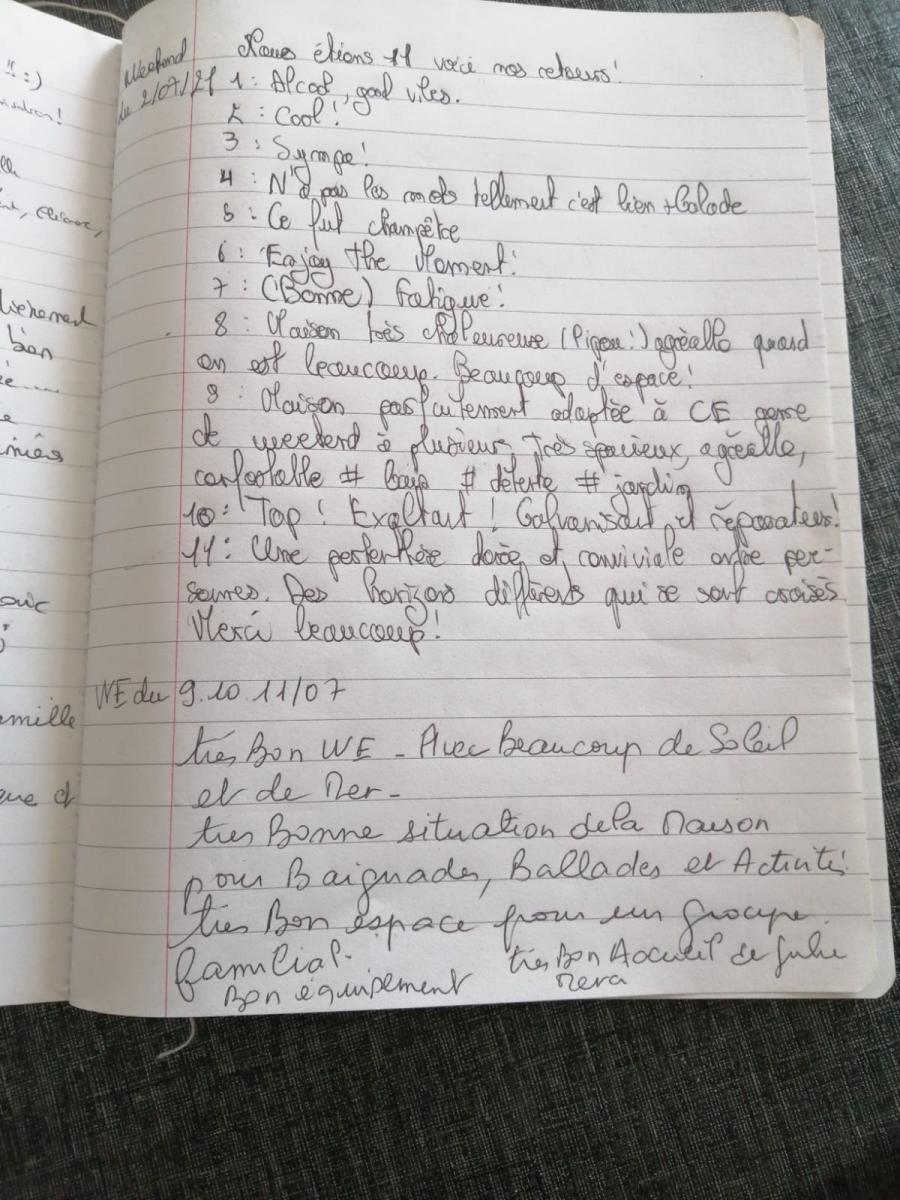 Weekend
du 2/07/21
Nous étions 11 voici nos retours!
1: Alcool, good vibes.
2: Cool!
3: Sympa!
4: N'a pas les mots tellement c'est bien + Balade
5: Ce fut champêtre
6: Enjoy the Moment!
7: (Bonne) fatigue!
8: Maison très chaleureuse (Pigeon!) agréable quand
on est beaucoup. Beaucoup d'espace!
9: Maison parfaitement adaptée à CE genre
de weekend à plusieurs, très spacieux, agréable,
confortable # baie # détente # jardin
10: Top! Exaltant! Galvanisant et réparateur!
11: Une parenthèse dorée et conviviale entre per-
sonnes. Des horizons différents qui se sont croisés
Merci beaucoup!
WE du 9.10.11/07
très Bon WE - Avec Beaucoup de Soleil
et de Mer-
très Bonne situation de la Maison
pour Baignades, Ballades et Activité.
très Bon espace pour un groupe
familial.
Bon équipement
très Bon Accueil de Julie
Merci
!! :)
lle
bien
...
ouic
amille
que d